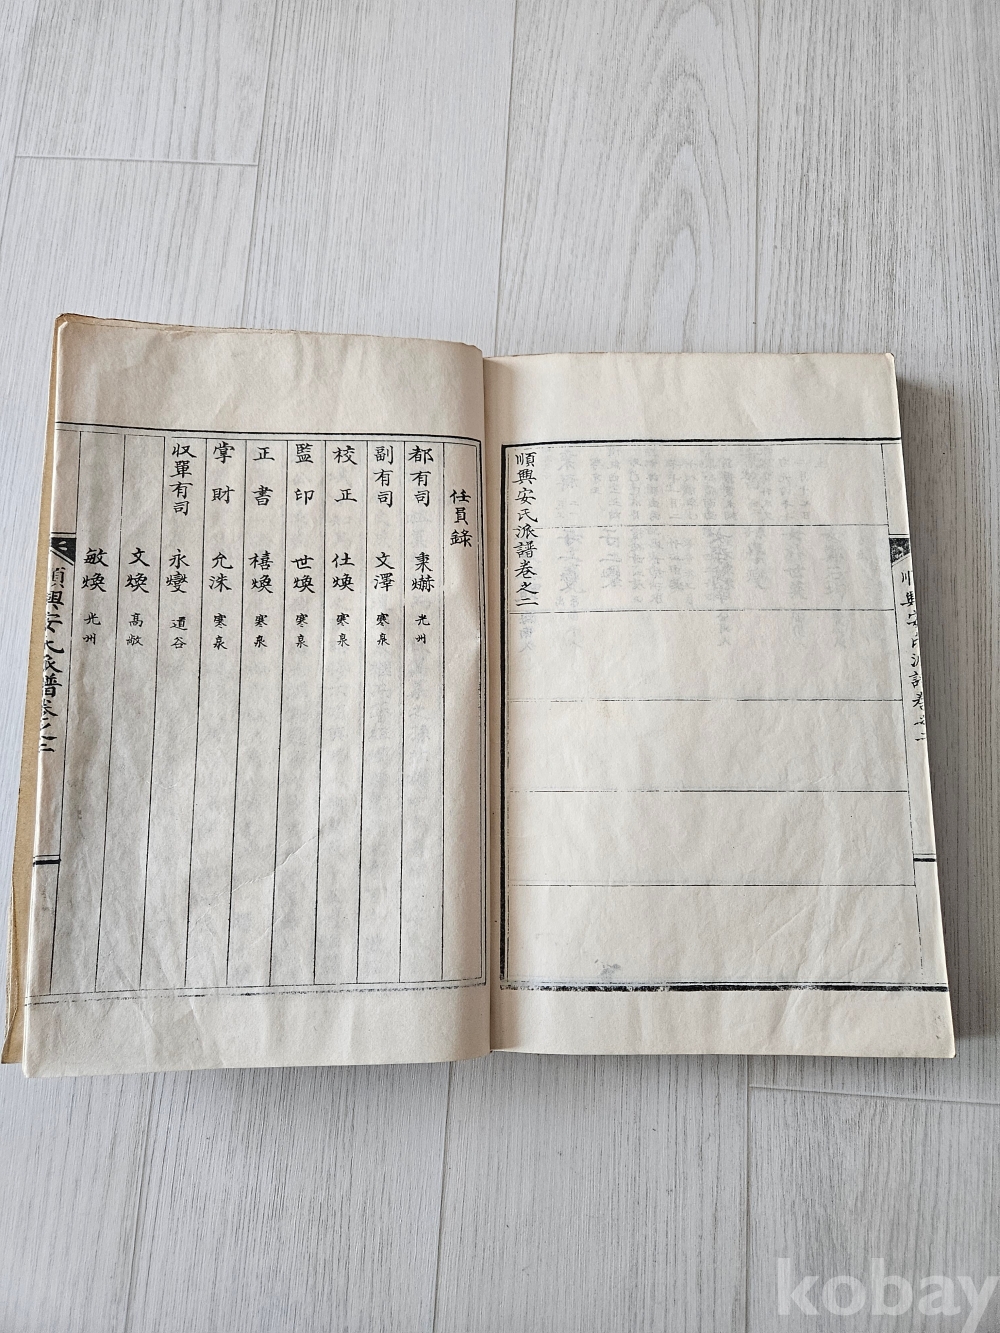 順興安氏派譜卷之二
順興安氏派譜卷之二
任員錄
都有司 秉爀 光州
副有司 文澤 寒泉
校正 仕煥 寒泉
監印 世煥 寒泉
正書 禧煥 寒泉
掌財 允洙 寒泉
収單有司 永燮 道谷
文煥 高敞
敏煥 光州
順興安氏派譜卷之二
kobay